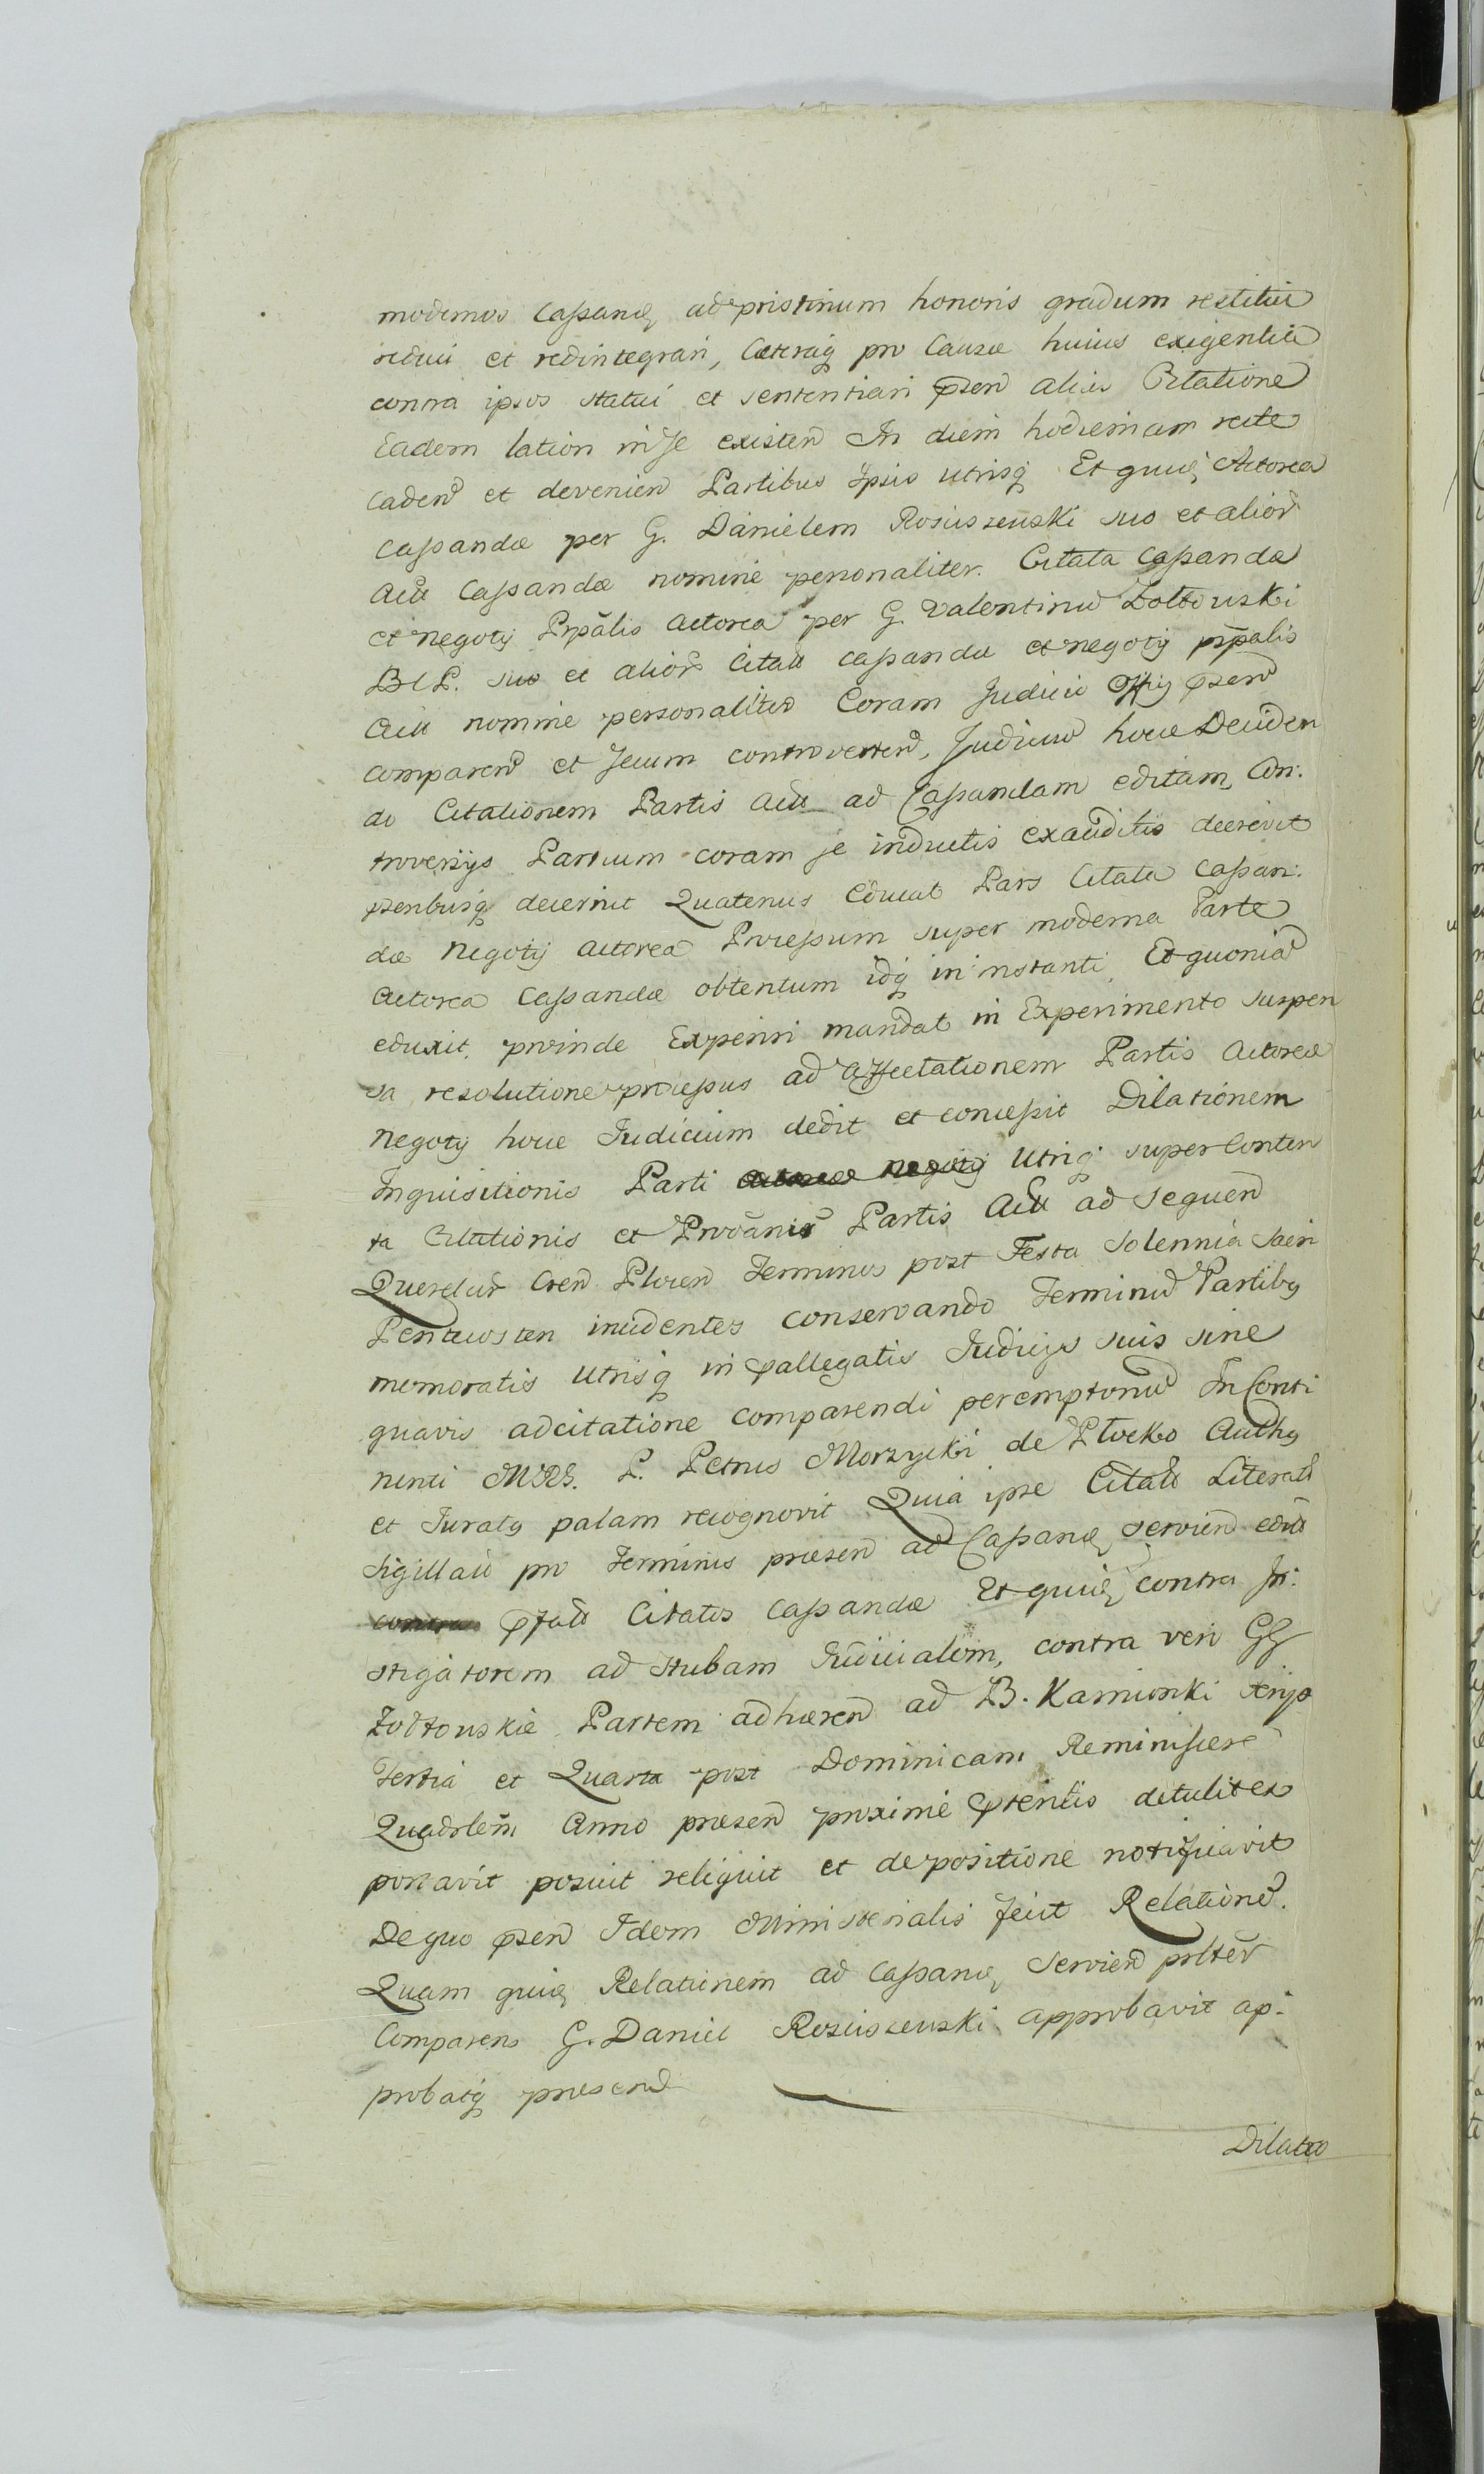 modernos Cassand ad pristinum honoris gradum restitui
reduci et redintegrari, Cæteraq pro Causæ huius exigentia
contra ipsos statui et sententiari psen alias Citatione
Eadem lation in se existen In diem hodiernam recte
Caden et devenien Partibus Ipsis utrisq Et quid Actorea
Cassandæ per G. Danielem Rosciszewski suo et alior
Act Cassandæ nomine personaliter. Citata Cassandæ
et negoty Prpalis Actorea per G. Valentinu Zołtowski
suo et alior Citat Cassandæ et negoty prpalis
Act nomine personaliter Coram Judicio Offy psen
comparen et secum controverten, Judiciu hocce Deciden
do Citationem Partis Act ad Cassandam editam, Con:
troversys Partium coram se inductis exauditis decrevit
psenbusq decernit Quatenus Educat Pars Citata Cassan:
dæ Negoty Actorea Processum super moderna Parte
Actorea Cassandæ obtentum idq in instanti Et quonia
eduxit, proinde Experiri mandat in Experimento suspen
sa resolutione processus ad affectationem Partis Actoreæ
Negoty hocce Judicium dedit et concessit Dilationem
Inquisitionis Parti Actoreæ Negoty Utriq super Conten
ta Citationis et Partis Act ad sequen
Querelar Cren Plocen Terminos post Festa Solennia Sacri
Pentecosten incidentes conservando Terminu Partibq
memoratis Utrisq in pallegatis Judicys suis sine
quavis adcitatione comparendi peremptoriu In Conti
nenti MRS. P. Petrus Morzycki de Plocko Authq
et Juratq palam recognovit Quia ipse Citat Literat
Sigillat pro Terminis præsen ad Cassand servien
contra pfatt Citatis Cassandæ Et quid contra In:
stigatorem ad Stubam Judicialem, contra vero GG
Zołtowskie Partem adhæren ad B. Kamionki
Tertia et Quarta post Dominicam Reminiscere
Quadrlem Anno præsen proxime ptentis detulit ex
portavit posuit reliquit et de positione notificavit
De quo psen Idem Ministerialis fecit Relatione.
Quam quid Relationem ad Cassand Servien prlter
Comparens G. Daniel Rosciszewski approbavit ap:
probatq præsend
Dilatio